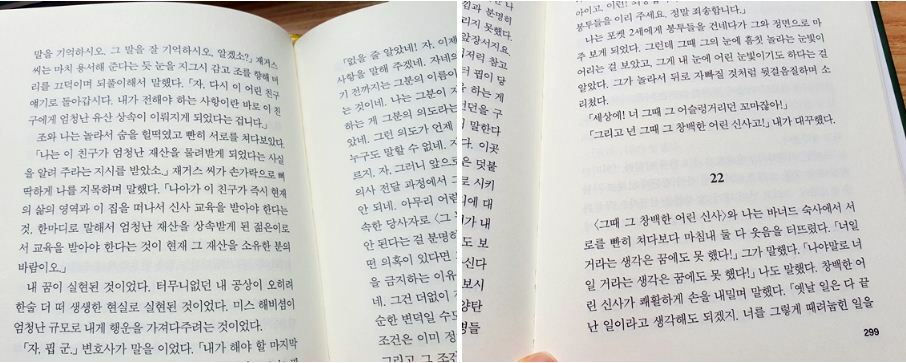 말을 기억하시오. 그 말을 잘 기억하시오. 알겠소?」 재거스
씨는 마치 용서해 준다는 듯 눈을 지그시 감고 조를 향해 머
리를 끄덕이며 되풀이해서 말했다. 「자, 다시 이 어린 친구
얘기로 돌아갑시다. 내가 전해야 하는 사항이란 바로 이 친
구에게 엄청난 유산 상속이 이뤄지게 되었다는 겁니다.」
조와 나는 놀라서 숨을 헐떡였고 빤히 서로를 쳐다보았다.
「나는 이 친구가 엄청난 재산을 물려받게 되었다는 사실
을 알려 주라는 지시를 받았소.」 재거스 씨가 손가락으로 삐
딱하게 나를 지목하며 말했다. 「나아가 이 친구가 즉시 현재
의 삶의 영역과 이 집을 떠나서 신사 교육을 받아야 한다는
것, 한마디로 말해서 엄청난 재산을 상속받게 된 젊은이로
서 교육을 받아야 한다는 것이 현재 그 재산을 소유한 분의
바람이오.」
내 꿈이 실현된 것이었다. 터무니없던 내 공상이 오히려
한술 더 떠 생생한 현실로 실현된 것이었다. 미스 해비셤이
엄청난 규모로 내게 행운을 가져다주려는 것이었다.
「자, 핍 군,」 변호사가 말을 이었다. 「내가 해야 할 마지막
「없을 줄 알았네! 자, 이제
사항을 말해 주겠네. 자네의
기 전까지는 그분의 이름이
는 것이네. 나는 그분이 자
하는 게 그분의 의도라는
았네. 그런 의도가 언제
누구도 말할 수 없네.
르지. 자, 그러니 앞으로
의사 전달 과정에서
안 되네. 아무리
속한 당사자로 〈그
안 된다는 걸 분명히
떤 의혹이 있다면
을 금지하는 이유
네. 그건 더없이
순한 변덕일 수도
조건은 이미 정
그리고 그 조건
아이고, 이런!
봉투들을 이리 주세요. 정말 죄송합니다.」
나는 포켓 2세에게 봉투들을 건네다가 그와 정면으로 마
주 보게 되었다. 그런데 그때 그의 눈에 흠칫 놀라는 눈빛이
어리는 걸 보았고, 그게 내 눈에 어린 눈빛이기도 하다는 걸
알았다. 그가 놀라서 뒤로 자빠질 것처럼 뒷걸음질하며 소
리쳤다.
「세상에! 너 그때 그 어슬렁거리던 꼬마잖아!」
「그리고 넌 그때 그 창백한 어린 신사고!」 내가 대꾸했다.
22
〈그때 그 창백한 어린 신사〉와 나는 바너드 숙사에서 서
로를 빤히 쳐다보다 마침내 둘 다 웃음을 터뜨렸다. 「너일
거라는 생각은 꿈에도 못 했다!」 그가 말했다. 「나야말로 너
일 거라는 생각은 꿈에도 못 했다!」 나도 말했다. 창백한 어
린 신사가 쾌활하게 손을 내밀며 말했다. 「옛날 일은 다 끝
난 일이라고 생각해도 되겠지. 너를 그렇게 때려눕힌 일을
299